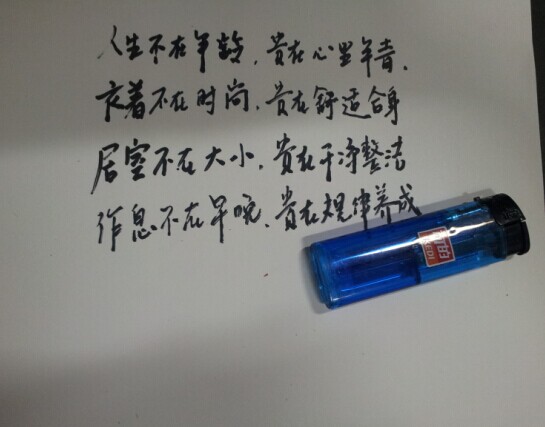 人生不在年龄，贵在心里年青，
衣着不在时尚，贵在舒适合身
居室不在大小，贵在干净整洁
作息不在早晚，贵在规律养成